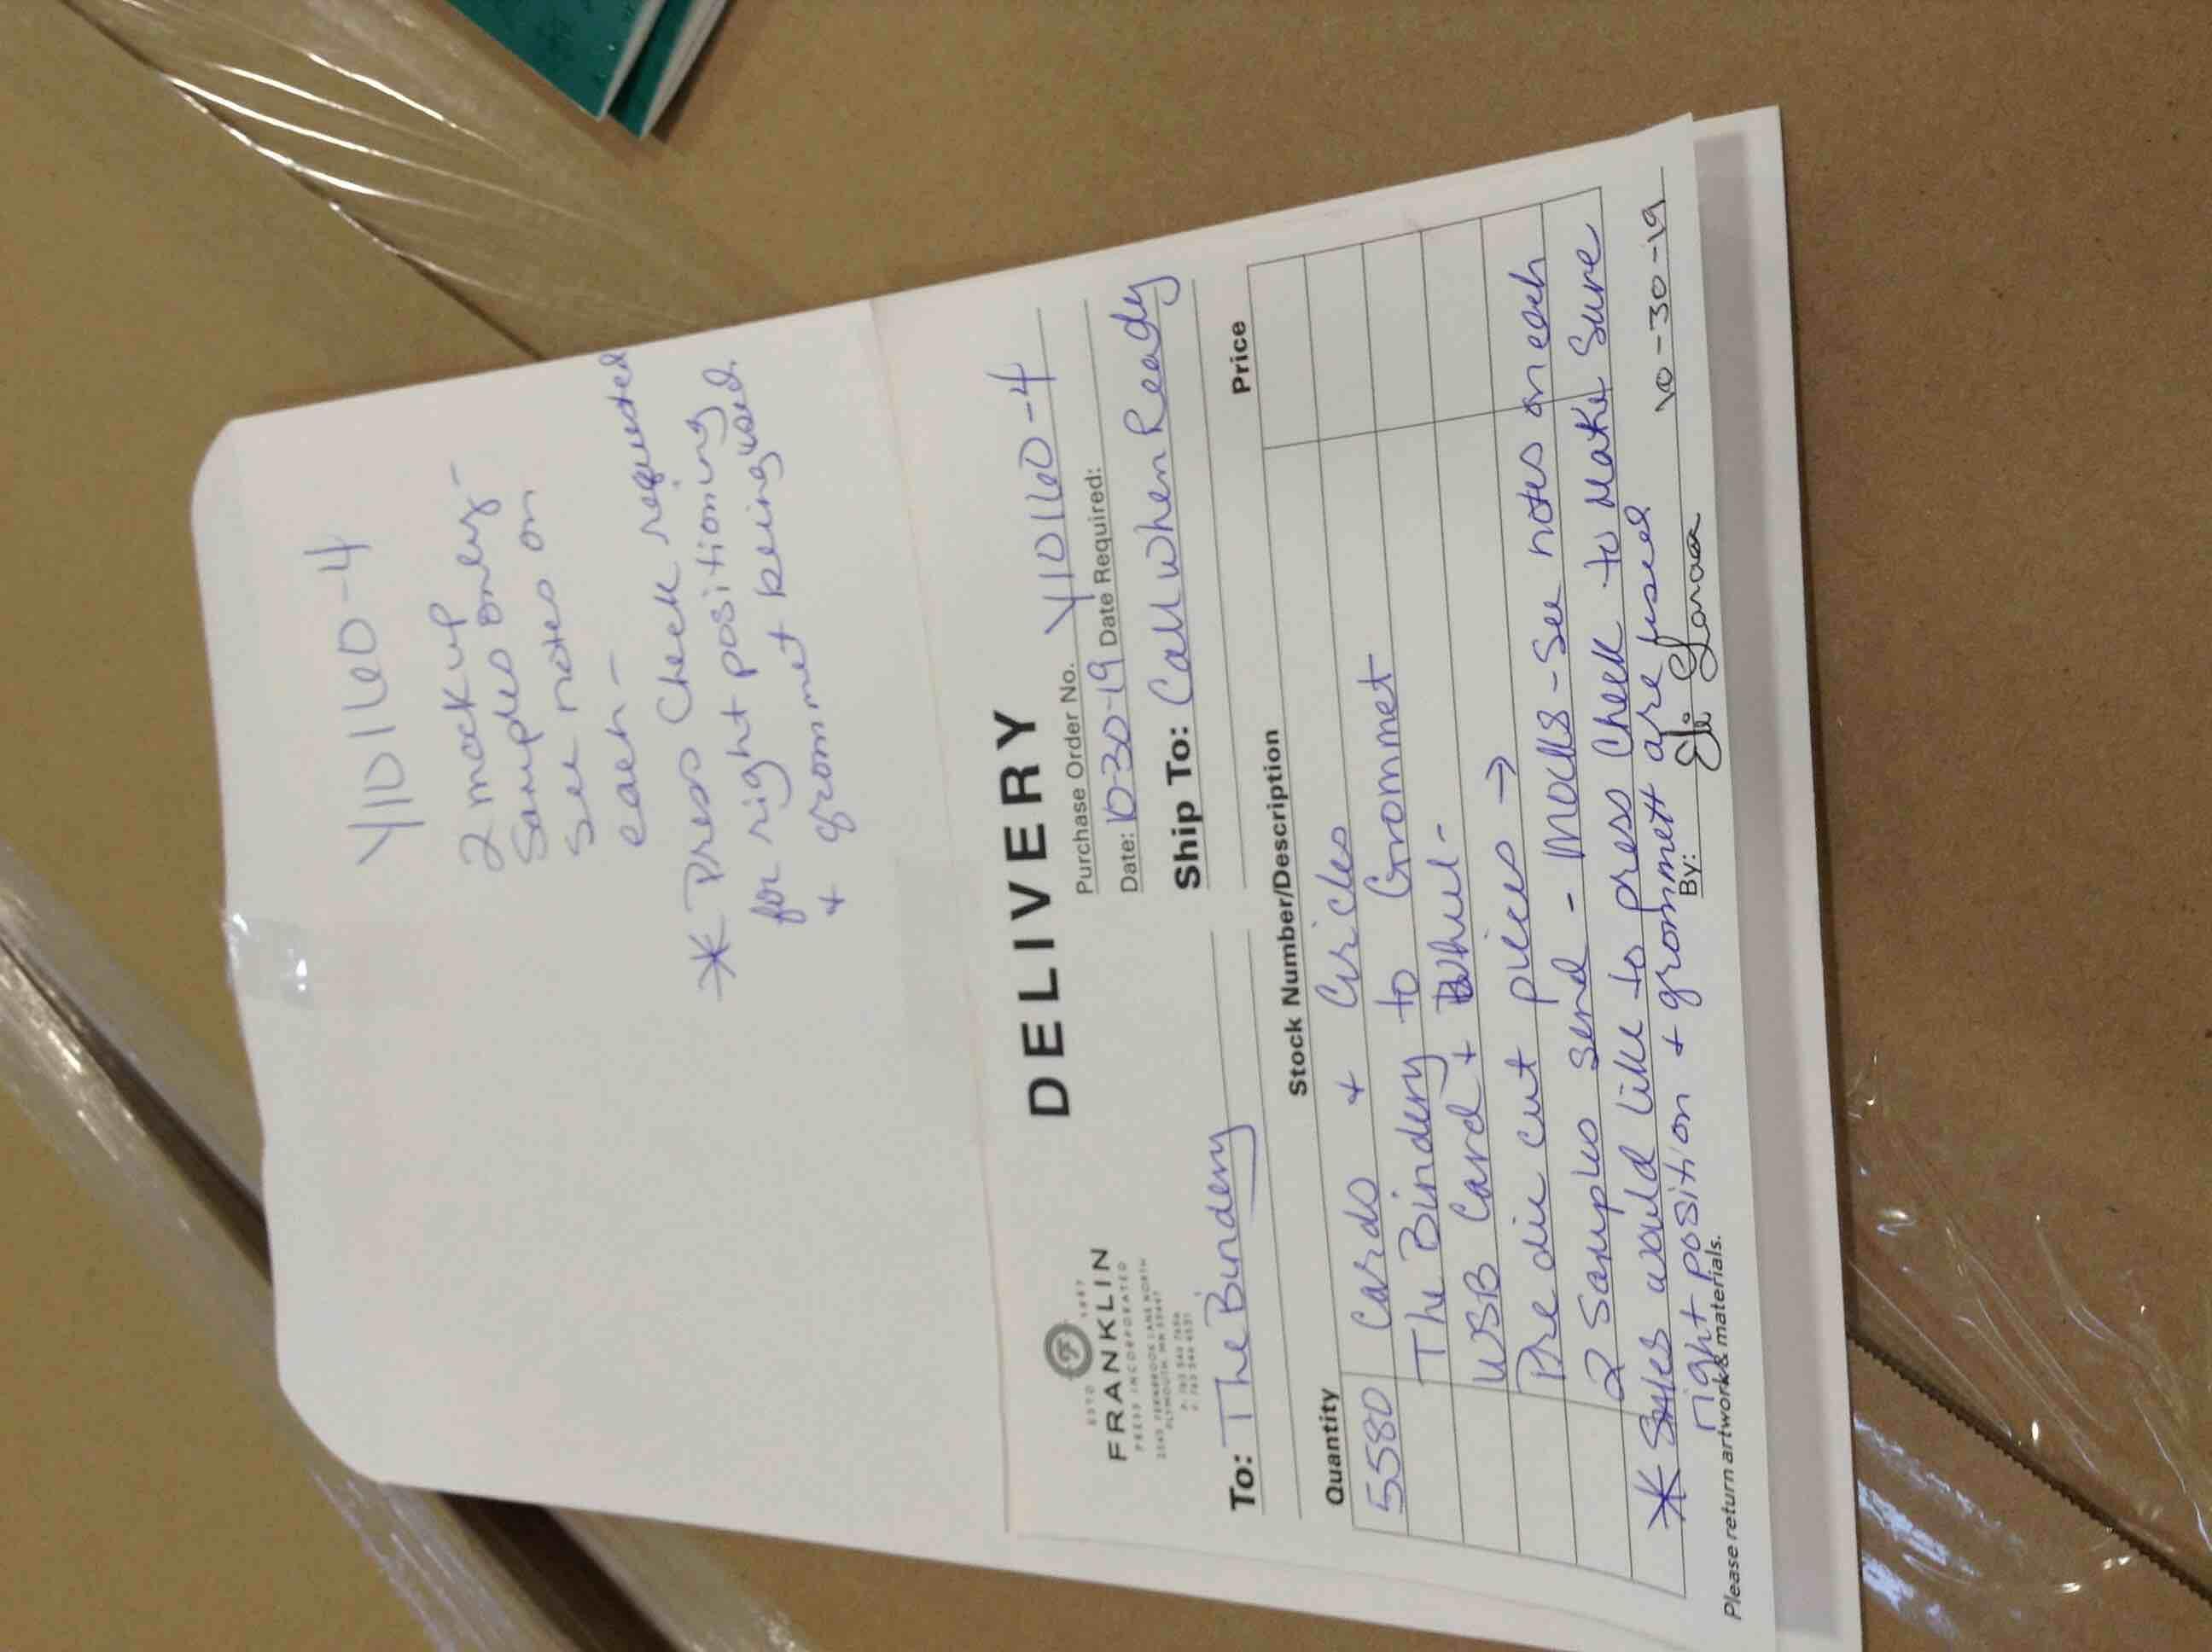 Y10160-4
2 mockup
samples only-
see notes on
each-
* Press Check requested
for right positioning
+ grommet being used.
DELIVERY
ESTD 1987
FRANKLIN
PRESS INCORPORATED
Purchase Order No. Y10160-4
Date: 10-30-19 Date Required:
To: The Bindery
Ship To: Call when Ready
Quantity Stock Number/Description Price
5580 Cards + Circles
The Bindery to Grommet
WSB Card + Wheel-
Pre die cut pieces →
2 Samples send - Mocks - See notes on each
* Sales would like to press Check to Make Sure
right position + grommett are used
By: 10-30-19
Please return artwork & materials.